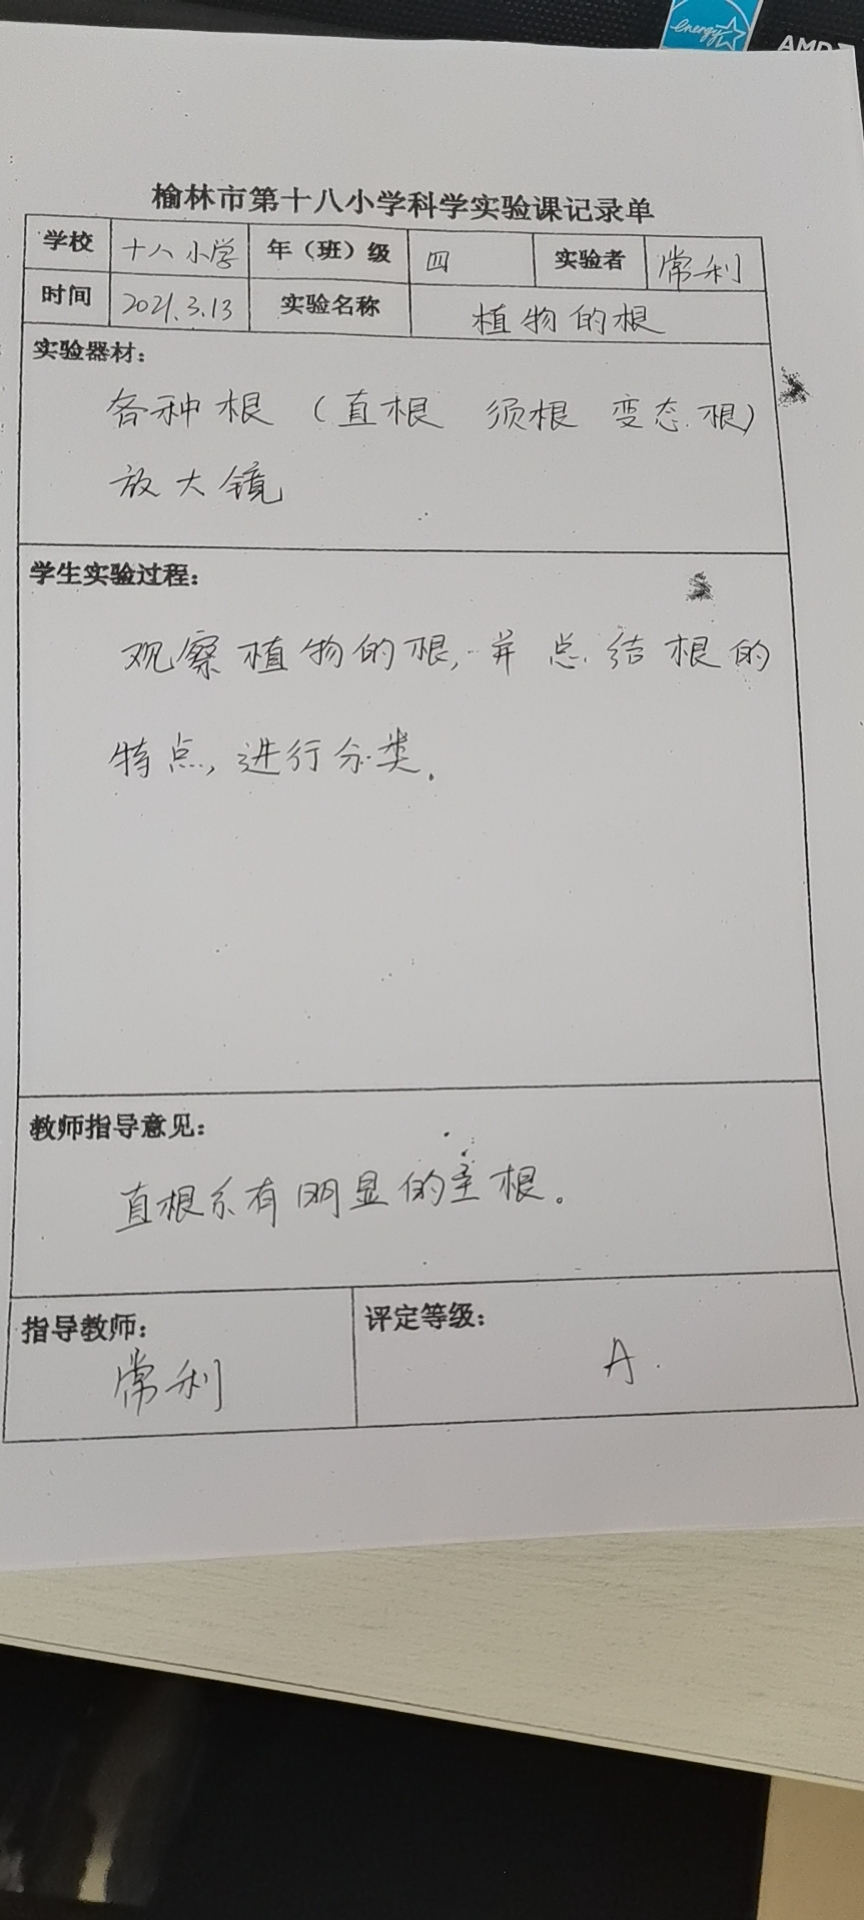 energy
AMD
榆林市第十八小学科学实验课记录单
学校 十八小学 年（班）级 四 实验者 常利
时间 2021.3.13 实验名称 植物的根
实验器材：
各种根（直根 须根 变态根）
放大镜
学生实验过程：
观察植物的根，并总结根的
特点，进行分类.
教师指导意见：
直根系有明显的主根。
指导教师： 评定等级：
常利 A.